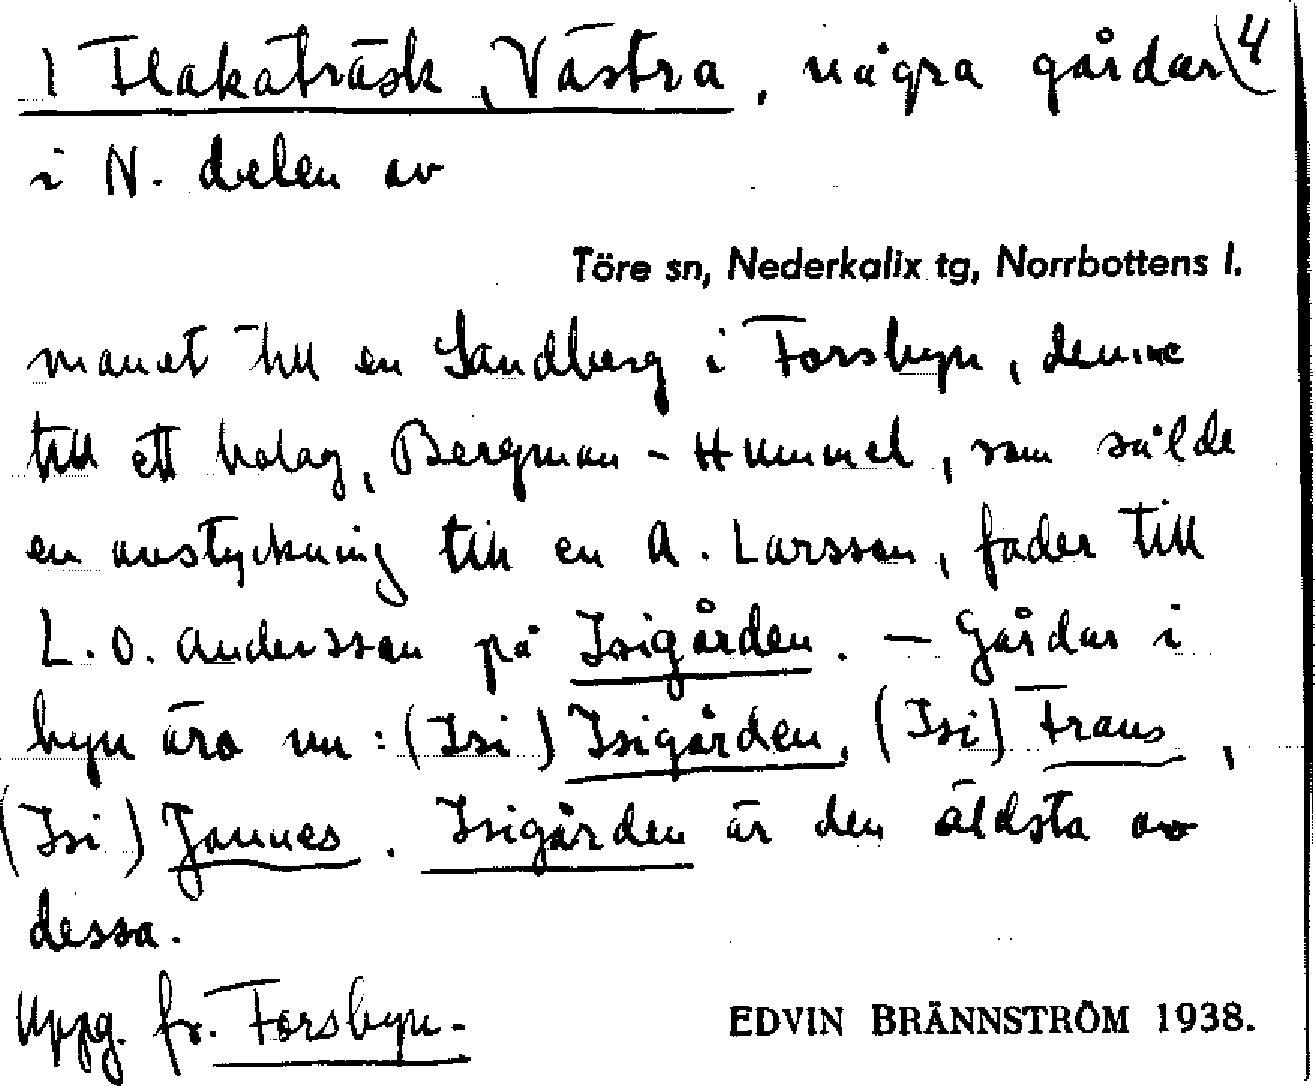 1 Flakaträsk, Västra, några gårdar (4
i N. delen av
Töre sn, Nederkalix tg, Norrbottens l.
manet till en Sandberg i Forsbyn, denne
till ett bolag, Bergman - Hummel, som sålde
en avstyckning till en A. Larsson, fader till
L. O. Andersson på Isigården. — Gårdar i
byn äro nu: (Isi) Isigården, (Isi) Frans,
(Isi) Jannes. Isigården är den äldsta av
dessa.
Uppg. fr. Forsbyn.
EDVIN BRÄNNSTRÖM 1938.